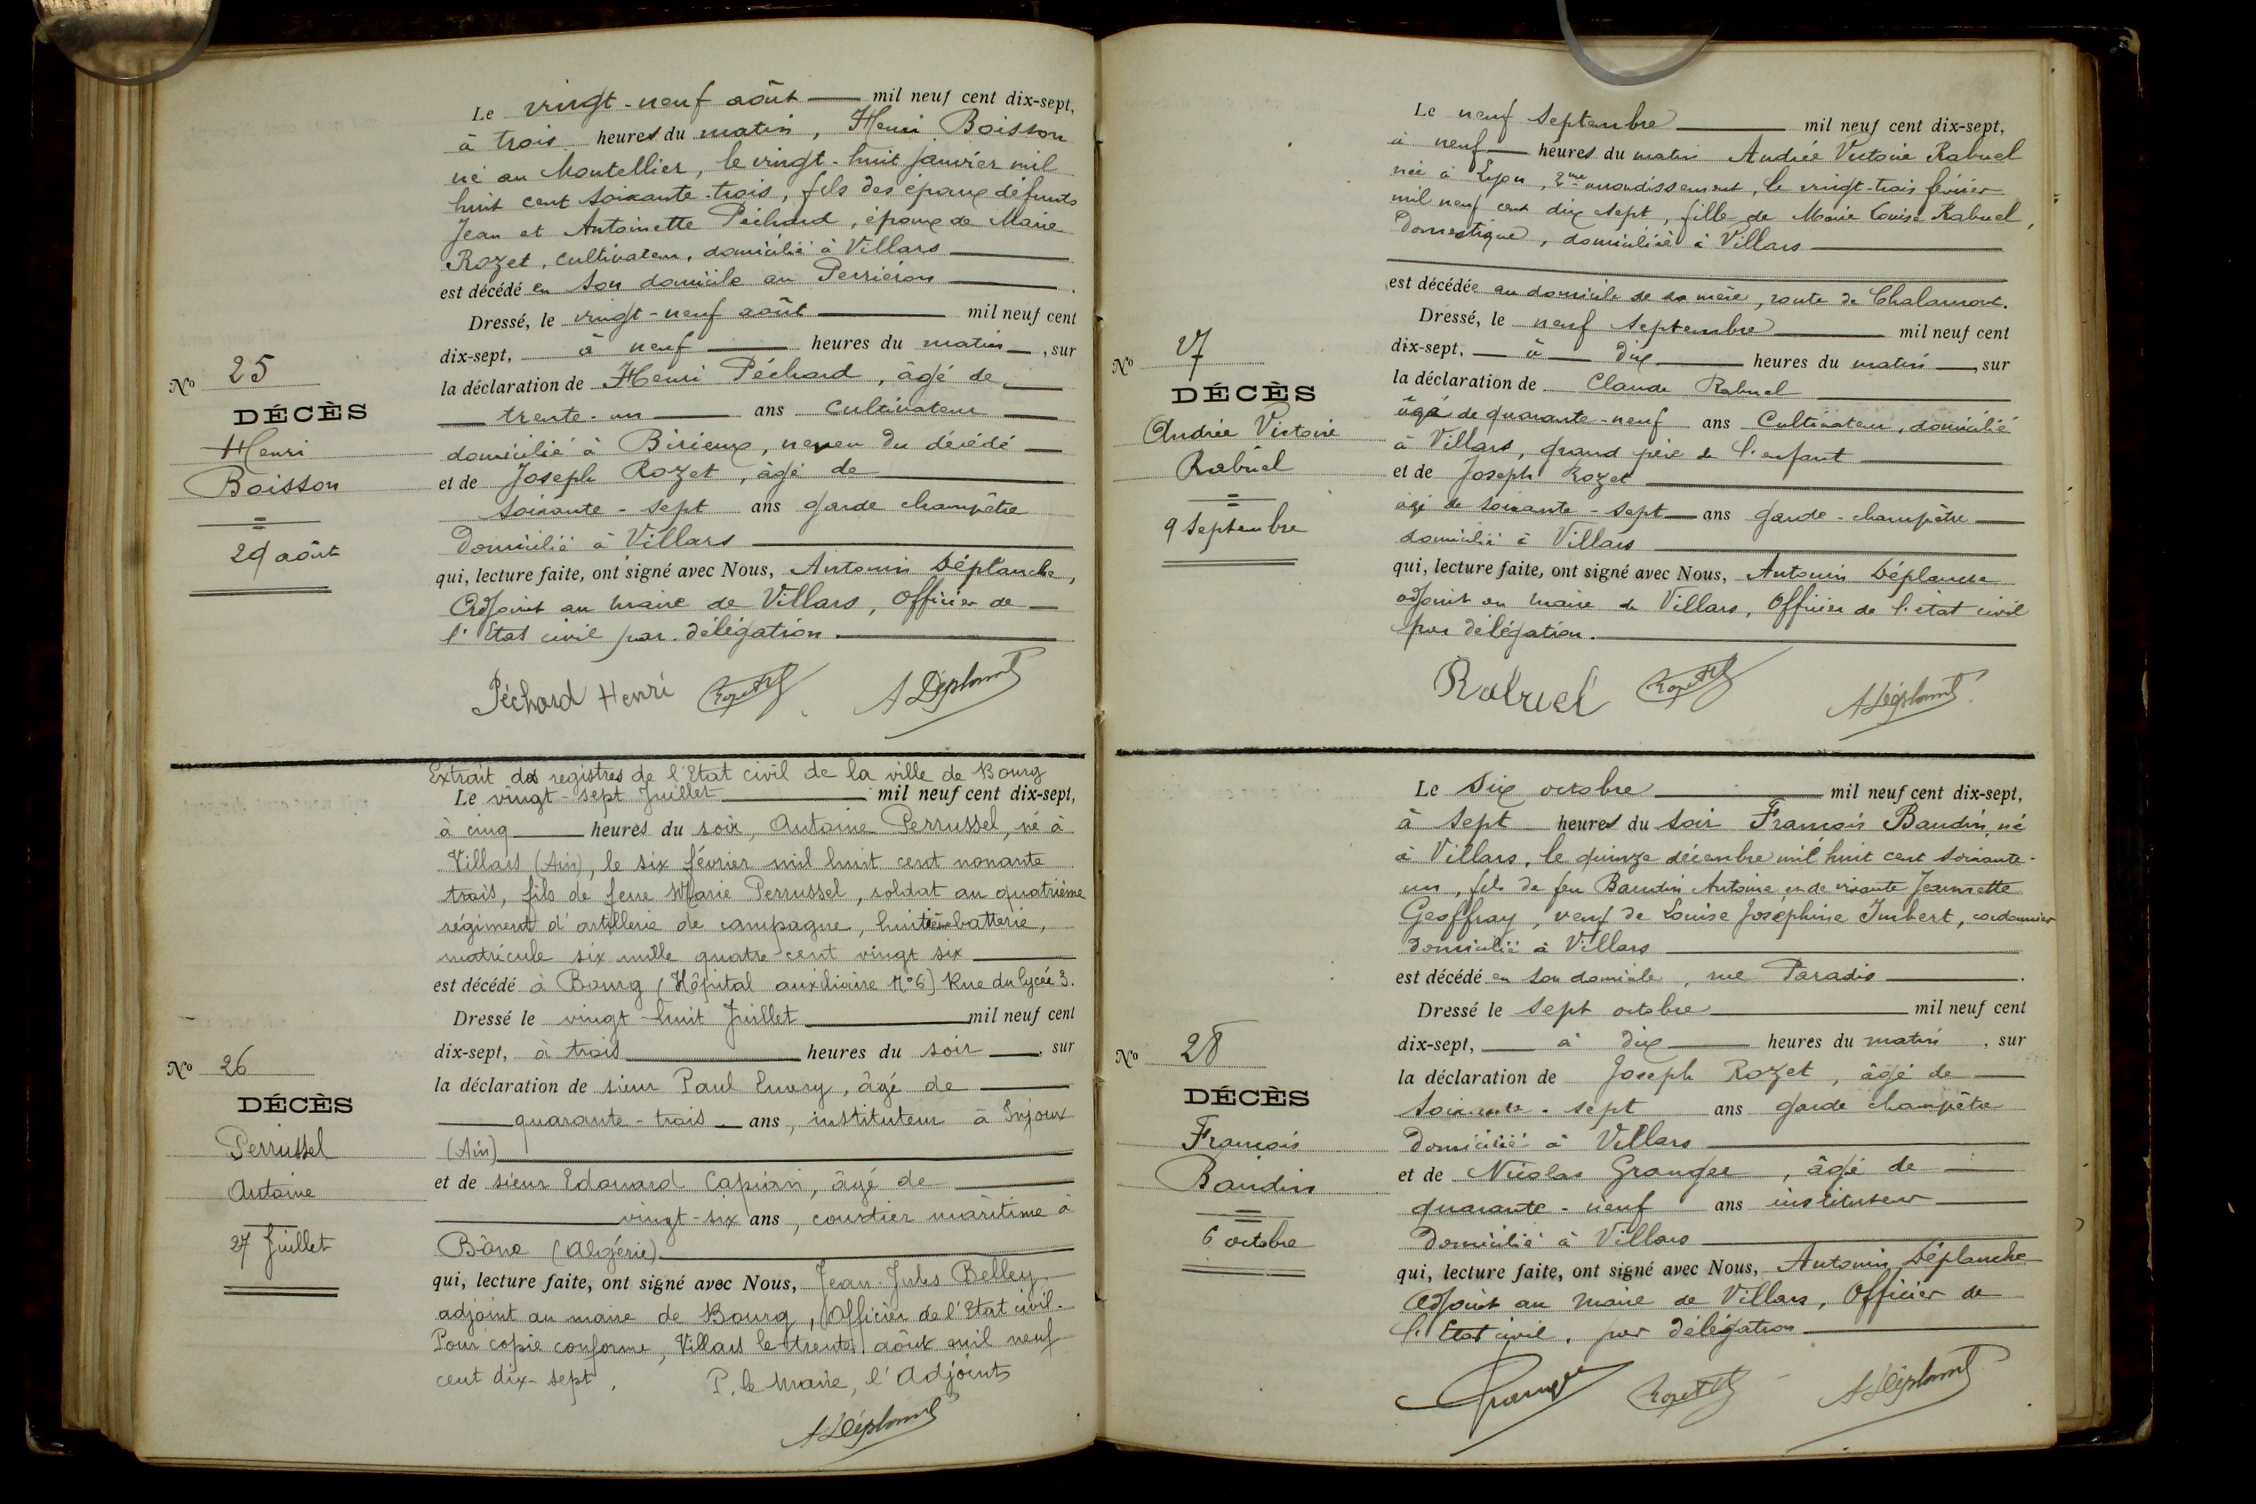 Le vingt-neuf août mil neuf cent dix-sept,
à trois heures du matin, Henri Boisson
né au Montellier, le vingt-huit janvier mil
huit cent soixante-trois, fils des époux défunts
Jean et Antoinette Péchard, époux de Marie
Rozet, cultivateur, domicilié à Villars
est décédé en son domicile au
Dressé, le vingt-neuf août mil neuf cent
dix-sept, à neuf heures du matin, sur
la déclaration de Henri Péchard, âgé de
trente-un ans cultivateur
domicilié à Birieux, neveu du décédé
et de Joseph Rozet, âgé de
soixante-sept ans garde champêtre
domicilié à Villars
qui, lecture faite, ont signé avec Nous, Antonin Déplanche,
Adjoint au maire de Villars, Officier de
l'Etat civil par délégation.
Péchard Henri Rozet A Déplanche
No 25
DÉCÈS
Henri
Boisson
29 août
Extrait des registres de l'Etat civil de la ville de Bourg
Le vingt-sept Juillet mil neuf cent dix-sept,
à cinq heures du soir, Antoine Perrussel, né à
Villars (Ain), le six février mil huit cent nonante
trois, fils de feue Marie Perrussel, soldat au quatrième
régiment d'artillerie de campagne, huitième batterie,
matricule six mille quatre cent vingt six
est décédé à Bourg (Hôpital auxiliaire No 6) Rue du lycée 3.
Dressé le vingt-huit Juillet mil neuf cent
dix-sept, à trois heures du soir, sur
la déclaration de sieur Paul Emery, âgé de
quarante-trois ans, instituteur à Injoux
(Ain)
et de sieur Edouard, âgé de
vingt-six ans, courtier maritime à
Bône (Algérie)
qui, lecture faite, ont signé avec Nous, Jean-Jules Belley,
adjoint au maire de Bourg, Officier de l'Etat civil.
Pour copie conforme, Villars le trente août mil neuf
cent dix-sept, P. le Maire, l'Adjoint
A Déplanche
No 26
DÉCÈS
Perrussel
Antoine
27 Juillet
Le neuf septembre mil neuf cent dix-sept,
à neuf heures du matin Andrée Victoire Rabuel
née à Lyon, 2me arrondissement, le vingt-trois février
mil neuf cent dix sept, fille de Marie Louise Rabuel,
Domestique, domiciliée à Villars
est décédée au domicile de sa mère, route de Chalamont.
Dressé, le neuf septembre mil neuf cent
dix-sept, à dix heures du matin, sur
la déclaration de Claude Rabuel
âgé de quarante-neuf ans Cultivateur, domicilié
à Villars, grand père de l'enfant
et de Joseph Rozet
âgé de soixante-sept ans garde-champêtre
domicilié à Villars
qui, lecture faite, ont signé avec Nous, Antonin Déplanche
adjoint au maire de Villars, Officier de l'état civil
par délégation.
Rabuel Rozet A Déplanche
No 27
DÉCÈS
Andrée Victoire
Rabuel
9 septembre
Le six octobre mil neuf cent dix-sept,
à sept heures du soir François Baudin, né
à Villars, le quinze décembre mil huit cent soixante-
un, fils de feu Baudin Antoine et de vivante Jeannette
Geoffray, veuf de Louise Joséphine Imbert, cordonnier
domicilié à Villars
est décédé en son domicile, rue Paradis
Dressé le sept octobre mil neuf cent
dix-sept, à dix heures du matin, sur
la déclaration de Joseph Rozet, âgé de
soixante-sept ans garde champêtre
domicilié à Villars
et de Nicolas Granger, âgé de
quarante-neuf ans instituteur
domicilié à Villars
qui, lecture faite, ont signé avec Nous, Antonin Déplanche
Adjoint au maire de Villars, Officier de
l'Etat civil, par délégation
Granger Rozet A Déplanche
No 28
DÉCÈS
François
Baudin
6 octobre